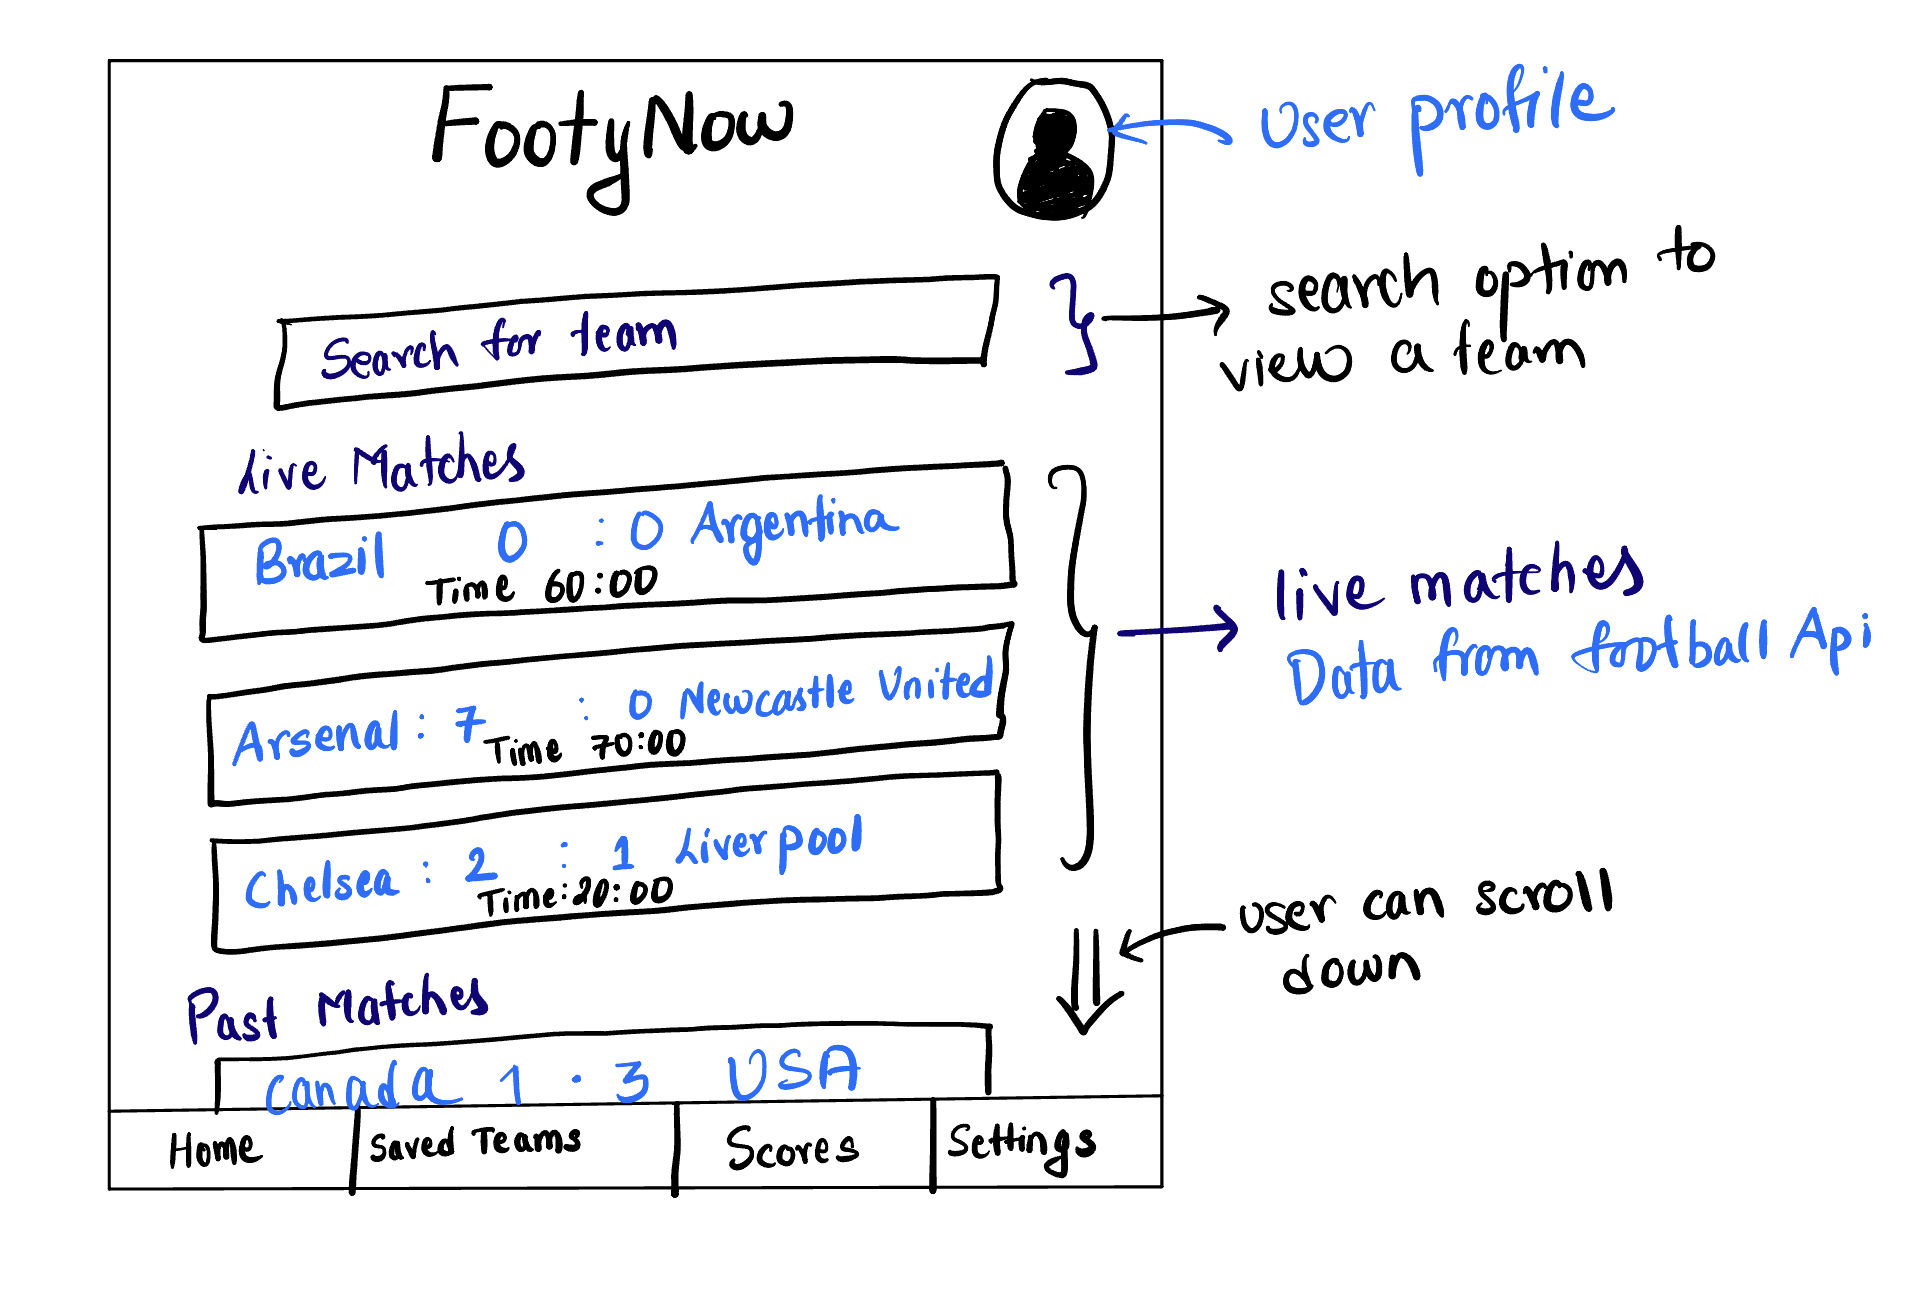 FootyNow
User profile
Search for team
search option to
view a team
Live Matches
Brazil 0 : 0 Argentina
Time 60:00
Arsenal : 7 : 0 Newcastle United
Time 70:00
live matches
Data from football Api
Chelsea : 2 : 1 Liverpool
Time: 20:00
user can scroll
down
Past Matches
Canada 1 · 3 USA
Home
Saved Teams
Scores
Settings